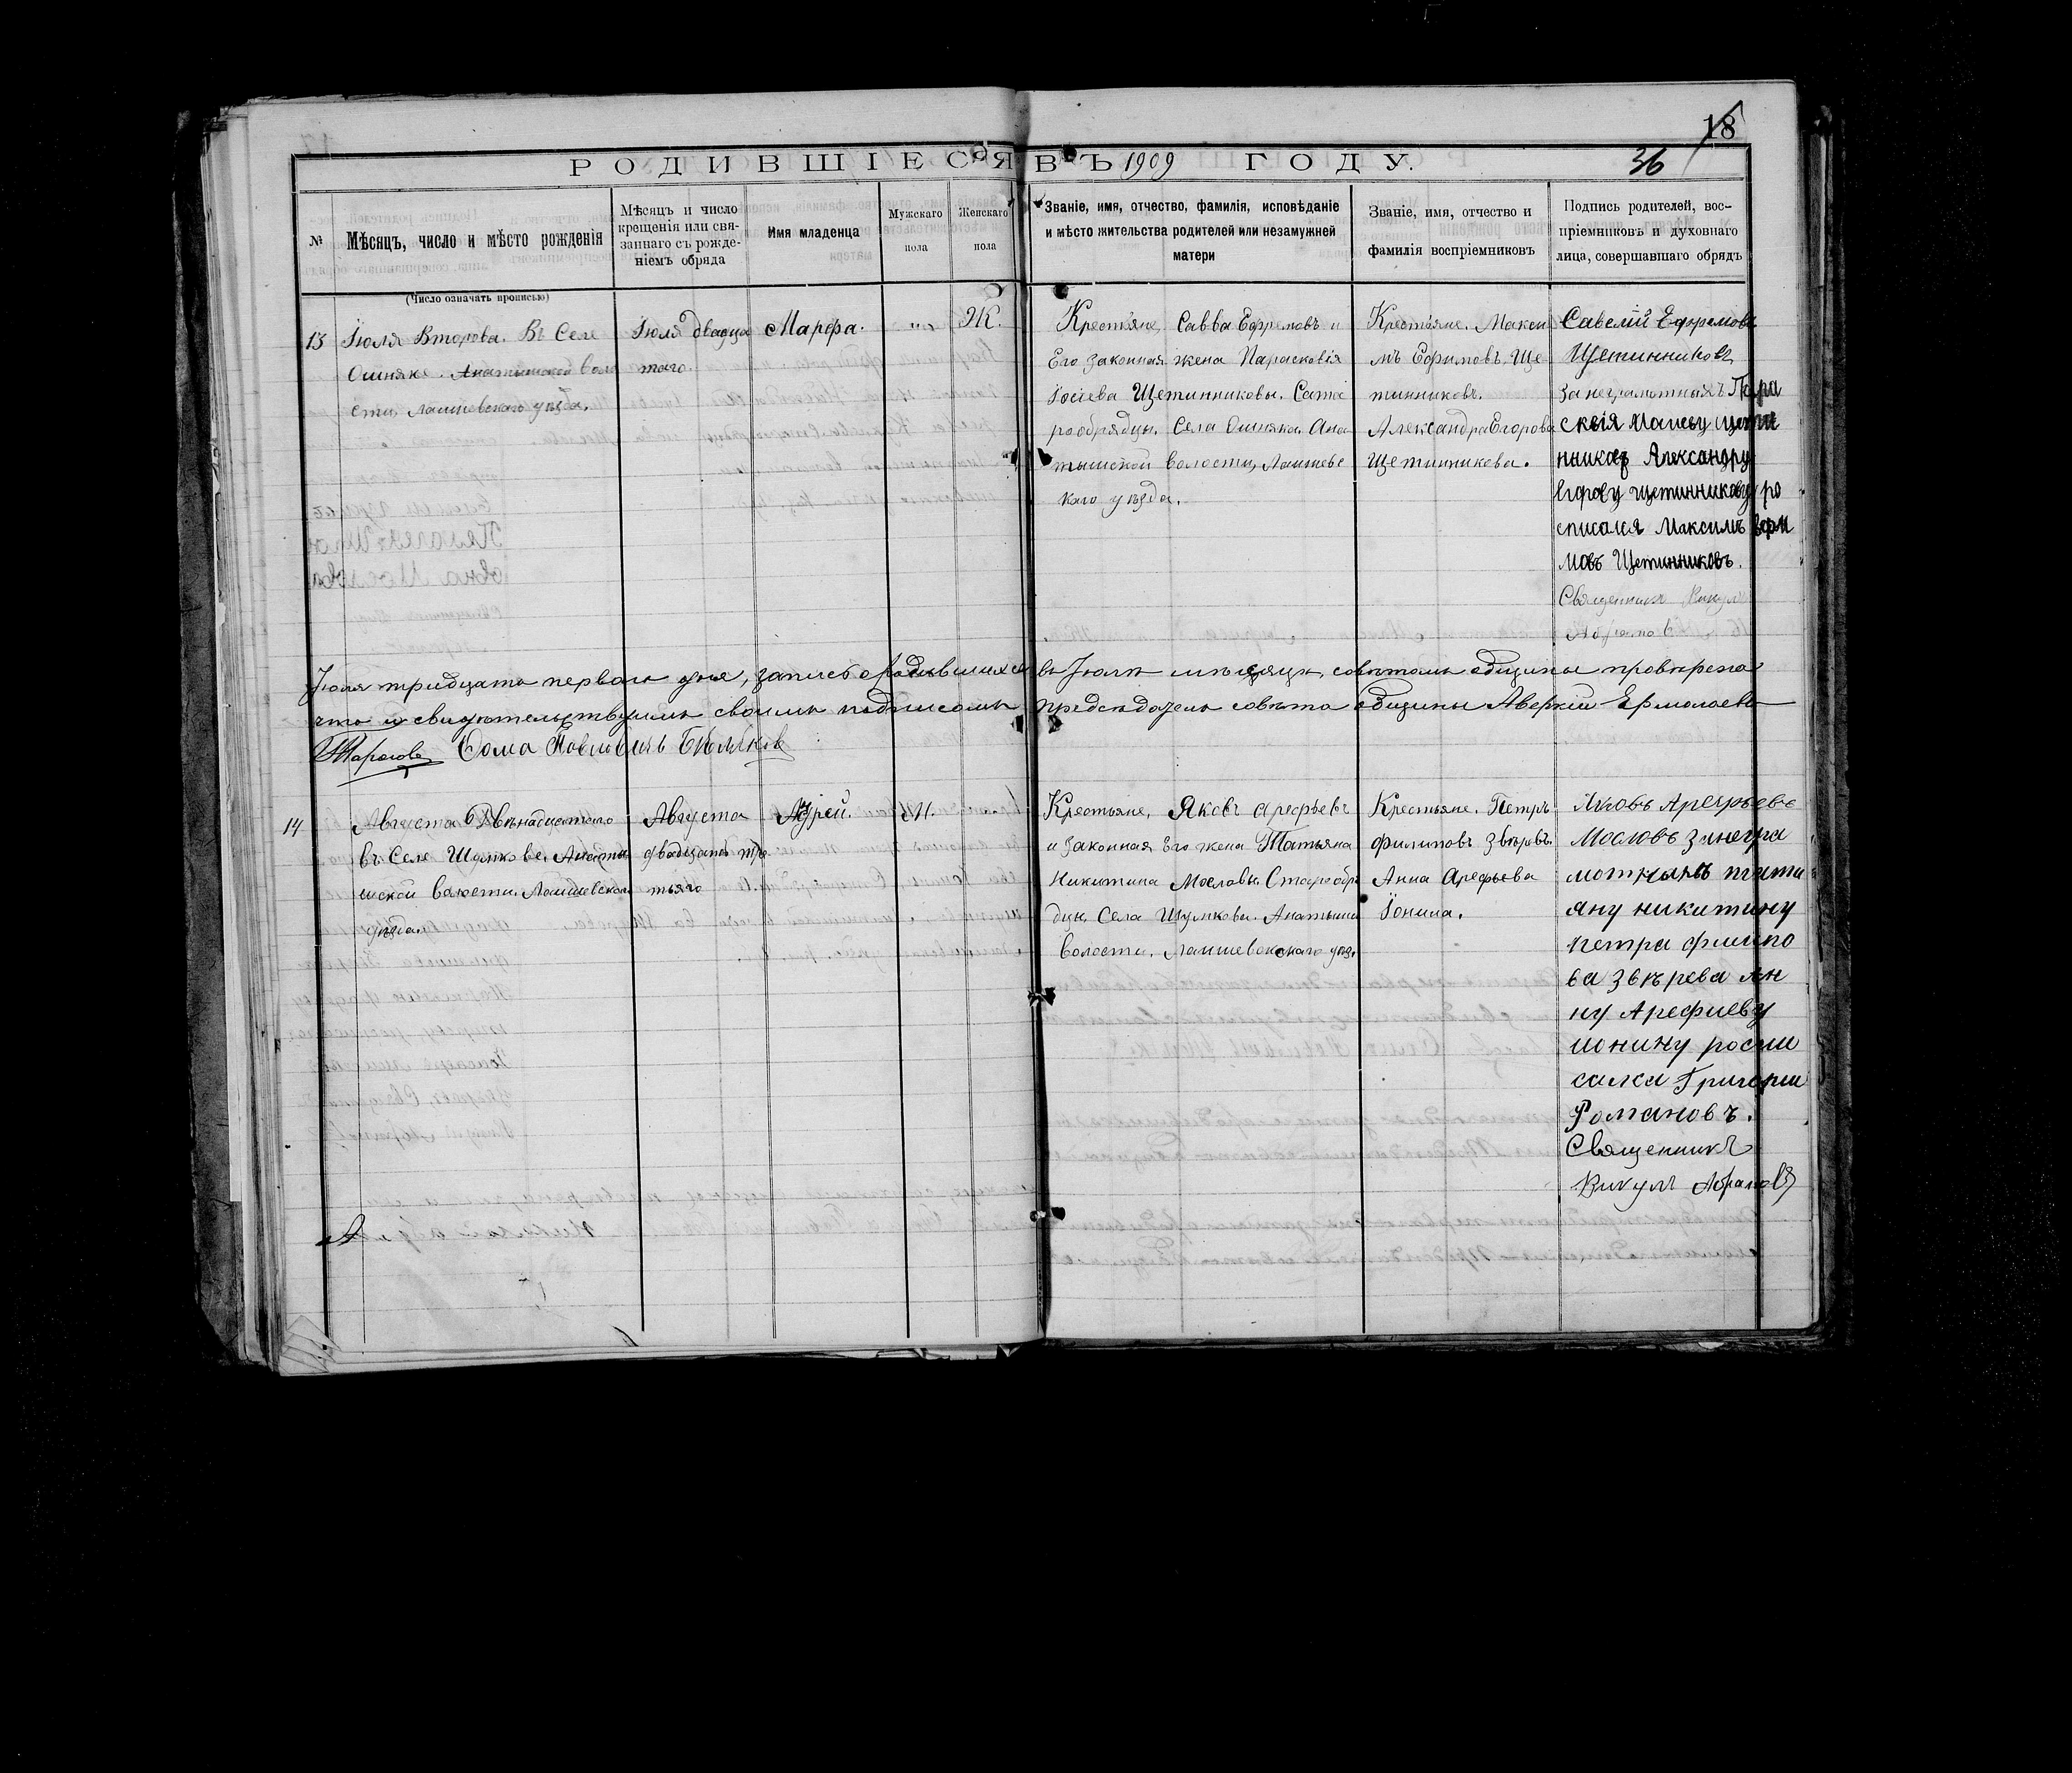 18
36
РОДИВШІЕСЯ ВЪ 1909 ГОДУ.
№
Мѣсяцъ, число и мѣсто рожденія
Мѣсяцъ и число
крещенія или свя-
заннаго съ рожде-
ніемъ обряда
Имя младенца
Мужскаго
пола
Женскаго
пола
Званіе, имя, отчество, фамилія, исповѣданіе
и мѣсто жительства родителей или незамужней
матери
Званіе, имя, отчество и
фамилія воспріемниковъ
Подпись родителей, вос-
пріемниковъ и духовнаго
лица, совершавшаго обрядъ
(Число означать прописью)
13
Іюля Второва. Въ Селе
Ошняке. Анатышской воло
сти, Лаишевскаго уѣзда.
Іюля двадца
таго.
Марфа.
"
Ж.
Крестьяне, Савва Ефремовъ и
Его законная жена Парасковія
Щетинниковы.
рообрядцы. Села Ошняка Ана
тышской волости, Лаишевс
каго уѣзда.
Крестьяне. Макси
мъ Ефимовъ Ще
тинниковъ.
Александра Егорова
Щетинникова.
Савелій Ефремовъ
Щетинниковъ
за неграмотныхъ Пара
сквія щети
нникова Александру
Егорову щетинникову ро
списался Максимъ Ефи
мовъ Щетинниковъ.
Священникъ Викулъ
Абрамов
Іюля тридцать перваго дня, запись о родившихся въ Іюлѣ мѣсяцѣ, совѣтомъ общины провѣрена
что и свидѣтельствуемъ своимъ подписомъ предсѣдатель совѣта общины Аверкій Ермолаевъ
Тарасовъ Фома Павловичъ Бѣляков
14
Августа Двѣнадцатаго
въ Селе Шумкове. Анаты
шской волости. Лаишевскаго
уѣзда.
Августа
двадцать тре
тьяго
М.
Крестьяне, Яковъ Арефьевъ
и законная Его жена Татьяна
Никитина Масловы. Старообря
дцы, Села Шумкова. Анатышс
волости. Лаишевскаго уѣз.
Крестьяне. Петръ
Филиповъ Звѣревъ.
Анна Арефьева
Іонина.
Яковъ Арефьевъ
Масловъ за негра
мотныхъ тати
яну никитину
петра филипо
ва звѣрева Ан
ну Арефиеву
ионину роспи
салса Григорий
Романовъ.
Священникъ
Викулъ Абрамовъ